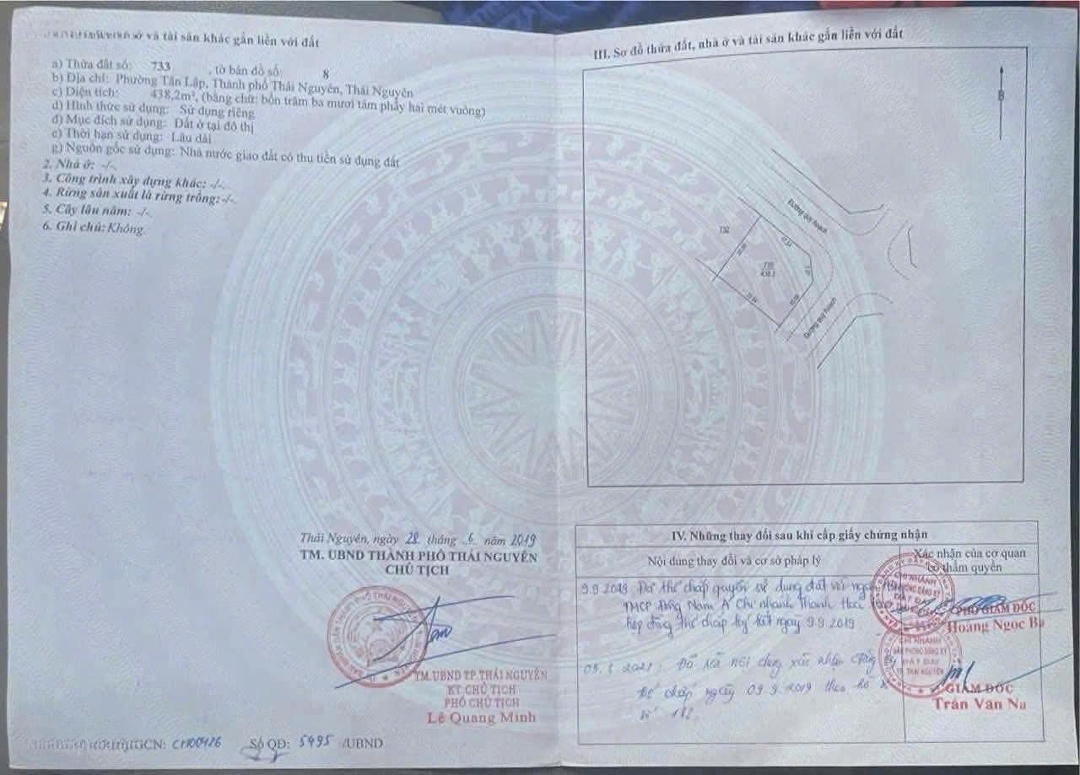 ở và tài sản khác gắn liền với đất
a) Thửa đất số: 733 , tờ bản đồ số: 8
b) Địa chỉ: Phường Tân Lập, Thành phố Thái Nguyên, Thái Nguyên
c) Diện tích: 438,2m², (bằng chữ: bốn trăm ba mươi tám phẩy hai mét vuông)
d) Hình thức sử dụng: Sử dụng riêng
đ) Mục đích sử dụng: Đất ở tại đô thị
e) Thời hạn sử dụng: Lâu dài
g) Nguồn gốc sử dụng: Nhà nước giao đất có thu tiền sử dụng đất
2. Nhà ở: -/-.
3. Công trình xây dựng khác: -/-.
4. Rừng sản xuất là rừng trồng: -/-.
5. Cây lâu năm: -/-.
6. Ghi chú: Không.
Thái Nguyên, ngày 28 tháng 6 năm 2019
TM. UBND THÀNH PHỐ THÁI NGUYÊN
CHỦ TỊCH
TM.UBND TP.THÁI NGUYÊN
KT.CHỦ TỊCH
PHÓ CHỦ TỊCH
Lê Quang Minh
GCN: CH00426 Số QĐ: 5495 /UBND
III. Sơ đồ thửa đất, nhà ở và tài sản khác gắn liền với đất
B
Đường quy hoạch
732
733
438.2
Đường quy hoạch
IV. Những thay đổi sau khi cấp giấy chứng nhận
Nội dung thay đổi và cơ sở pháp lý
Xác nhận của cơ quan
có thẩm quyền
9.9.2019 Đã thế chấp quyền sử dụng đất với ngân hàng
TMCP Đông Nam Á Chi nhánh Thanh Hoá
hợp đồng thế chấp ký kết ngày 9.9.2019
PHÓ GIÁM ĐỐC
Hoàng Ngọc Ba
2021: Đã xoá nội dung xác nhận đăng ký
thế chấp ngày 09.9.2019 theo hồ sơ
số 112
GIÁM ĐỐC
Trần Văn Na